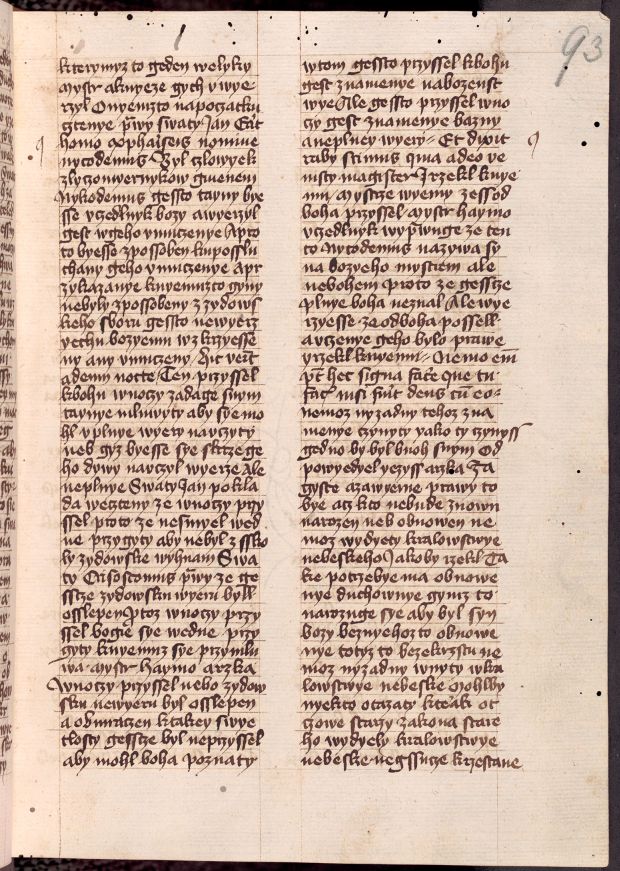 93
kterymyz to geden welyky
mystr a knyeze gych vwye
rzyl Onyemzto napoczatku
cztenye prwy swaty Jan Erat
homo ex phariseis nomine
nycodemus Byl czlowyek
z lyczomyernykow gmenem
Nykodemus gessto tayny bye
sse vczedlnyk bozy a wyerzyl
gest wgeho vmuczenye A pro
to byesse zpossoben ku posslu
chany geho vmuczenye A prz
zykazanye knyemuzto gyny
nebyly zpossobeny z zydows
keho sboru gessto newyerz
yechu bozyemu wzkrzyesse
ny any vmuczeny Hic venit
ad eum nocte Ten przyssel
kbohu wnoczy zadage snym
taynye mluwyty aby sye mo
hl vplnye wyery nauczyty
neb giz byesse sye skrze ge
ho dywy nauczyl wyerze Ale
neplnye Swaty Jan pokla
da we czteny ze wnoczy przy
ssel proto ze nesmyel wed
ne przygyty aby nebyl z ssko
ly zydowske wyhnan Swa
ty Crisostomus prwy ze ge
sscze zydowsku wyeru byll
osslepen protoz wnoczy przy
ssel bogie sye wedne przy
gyty knyemuz sye przymlu
wa mystr haymo arzka
Wnoczy przyssel nebo zydow
sku newyeru byl osslepen
a obmraczen ktakey swye
tlosty gesscze byl neprzyssel
aby mohl boha poznaty
wtom gessto przyssel kbohu
gest znamenye nabozenst
wye Ale gessto przyssel wno
czy gest znamenye bazny
a neplney wyery Et dixit
raby scimus quia a deo ve
nisti magister J rzekl knye
mu mystrze wyemy zess od
boha przyssel mystr haymo
vczedlnyk wyprawuge ze ten
to Nycodemus nazywa sy
na bozyeho mystrem ale
ne bohem proto ze gesscze
plnye boha neznal Ale wye
rzyesse ze od boha possell
a vczenye geho bylo prawe
y rzekl knyemu Nemo enim
potest hec signa facere que tu
facis nisi fuerit deus cum eo
nemoz nyzadny tehoz zna
menye czynyty yako ty czynyss
gedno by byl buoh snym Od
powyedyel yezyss arzka Za
gyste azawyerne prawy to
bye acz kto nebude znowu
narozen neb obnowen ne
moz wydyety kralowstwye
nebeskeho Jakoby rzekl Ta
ke potrzebye ma obnowe
nye duchownye gymz to
narozuge sye aby byl syn
bozy beznyehozto obnowe
nye totyz to bezekrzstu ne
moz nyzadny wnyty wkra
lowstwye nebeske Mohlby
nyekto otazaty kterak ot
czowe starzy zakona stare
ho wydyely kralowstwye
nebeske negssucze krzestane